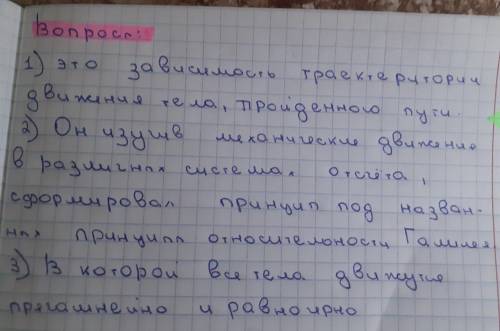 Вопросы:
1) это зависимость траектеритории
движения тела, пройденного пути.
2) Он изучив механические движение
в различных системах отсчёта,
сформировал принцип под назван-
ных принципп относительности Галилея
3) В которой все тела движутся
прямолинейно и равноирно